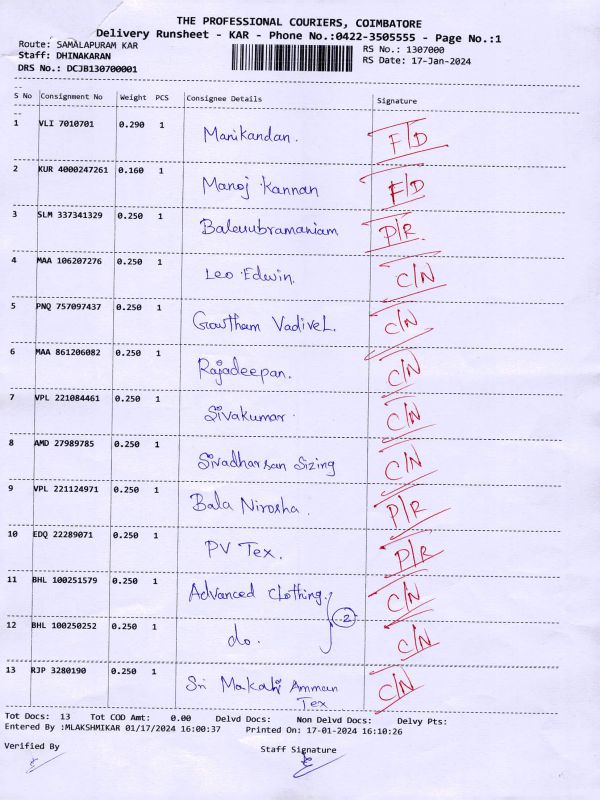 THE PROFESSIONAL COURIERS, COIMBATORE
Delivery Runsheet - KAR - Phone No.:0422-3505555 - Page No.:1
Route: SAMALAPURAM KAR RS No.: 1307000
Staff: DHINAKARAN RS Date: 17-Jan-2024
DRS No.: DCJB130700001
S No Consignment No Weight PCS Consignee Details Signature
1 VLI 7010701 0.290 1 Manikandan. F/D
2 KUR 4000247261 0.160 1 Manoj Kannan F/D
3 SLM 337341329 0.250 1 P/R
4 MAA 106207276 0.250 1 Leo Edwin. C/N
5 PNQ 757097437 0.250 1 Gowtham Vadivel. C/N
6 MAA 861206082 0.250 1 Rajadeepan. C/N
7 VPL 221084461 0.250 1 Sivakumar. C/N
8 AMD 27989785 0.250 1 Sivadharsan Sizing C/N
9 VPL 221124971 0.250 1 Bala Nirosha. P/R
10 EDQ 22289071 0.250 1 PV Tex. P/R
11 BHL 100251579 0.250 1 Advanced Clothing. C/N
2
12 BHL 100250252 0.250 1 do. C/N
13 RJP 3280190 0.250 1 Sri Makali Amman C/N
Tex
Tot Docs: 13 Tot COD Amt: 0.00 Delvd Docs: Non Delvd Docs: Delvy Pts:
Entered By :MLAKSHMIKAR 01/17/2024 16:00:37 Printed On: 17-01-2024 16:10:26
Verified By Staff Signature